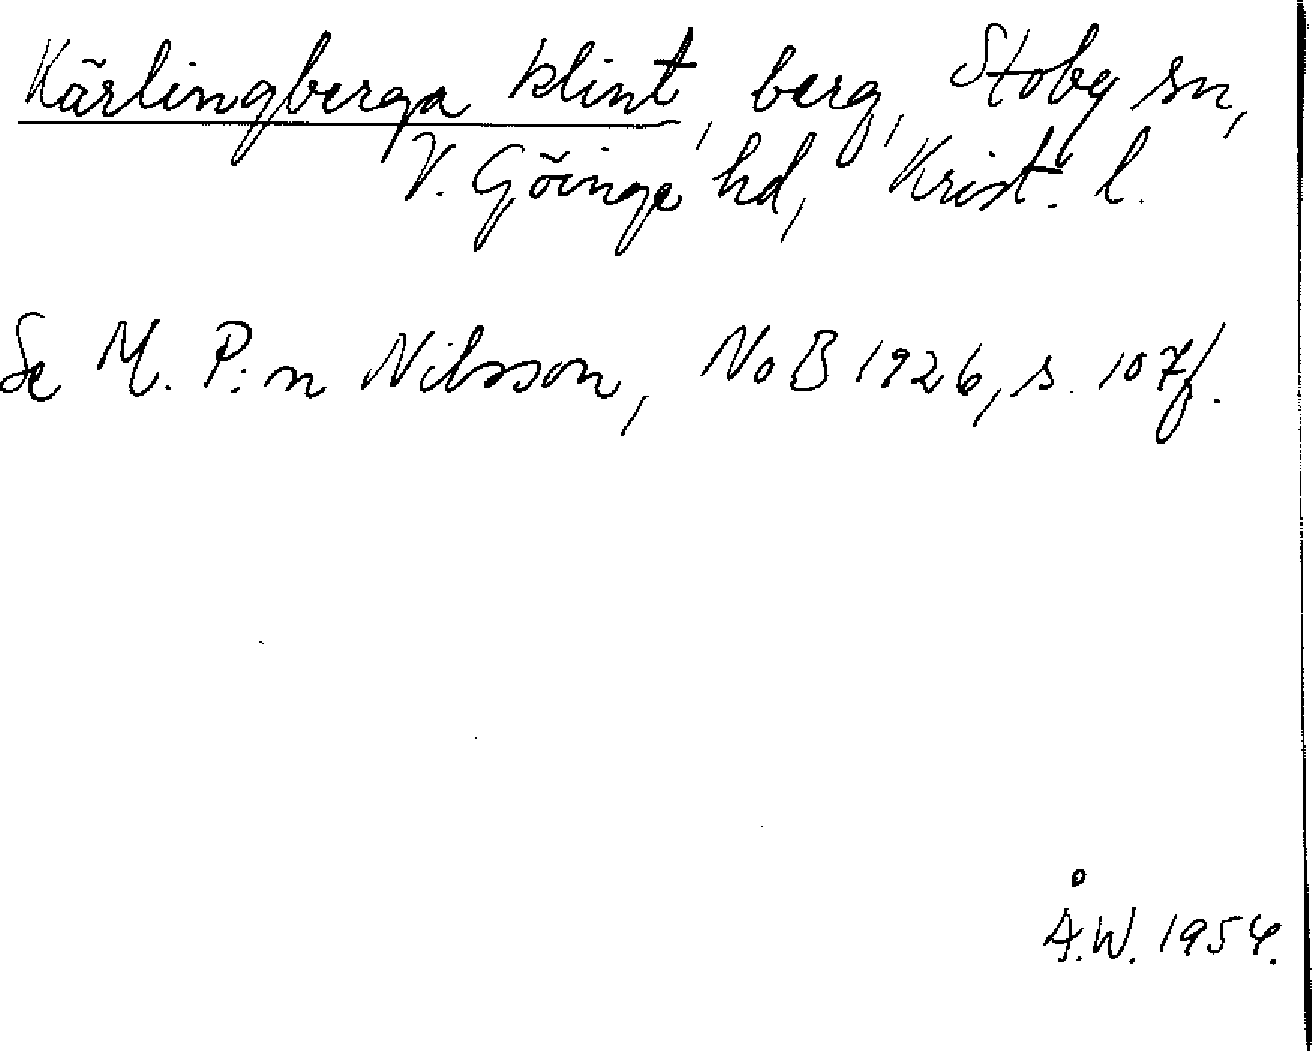 Kärlingberga klint, berg, Stoby sn,
V. Göinge hd, Krist. l.
Se M. P:n Nilsson, NoB 1926, s. 107f.
Å.W. 1954.